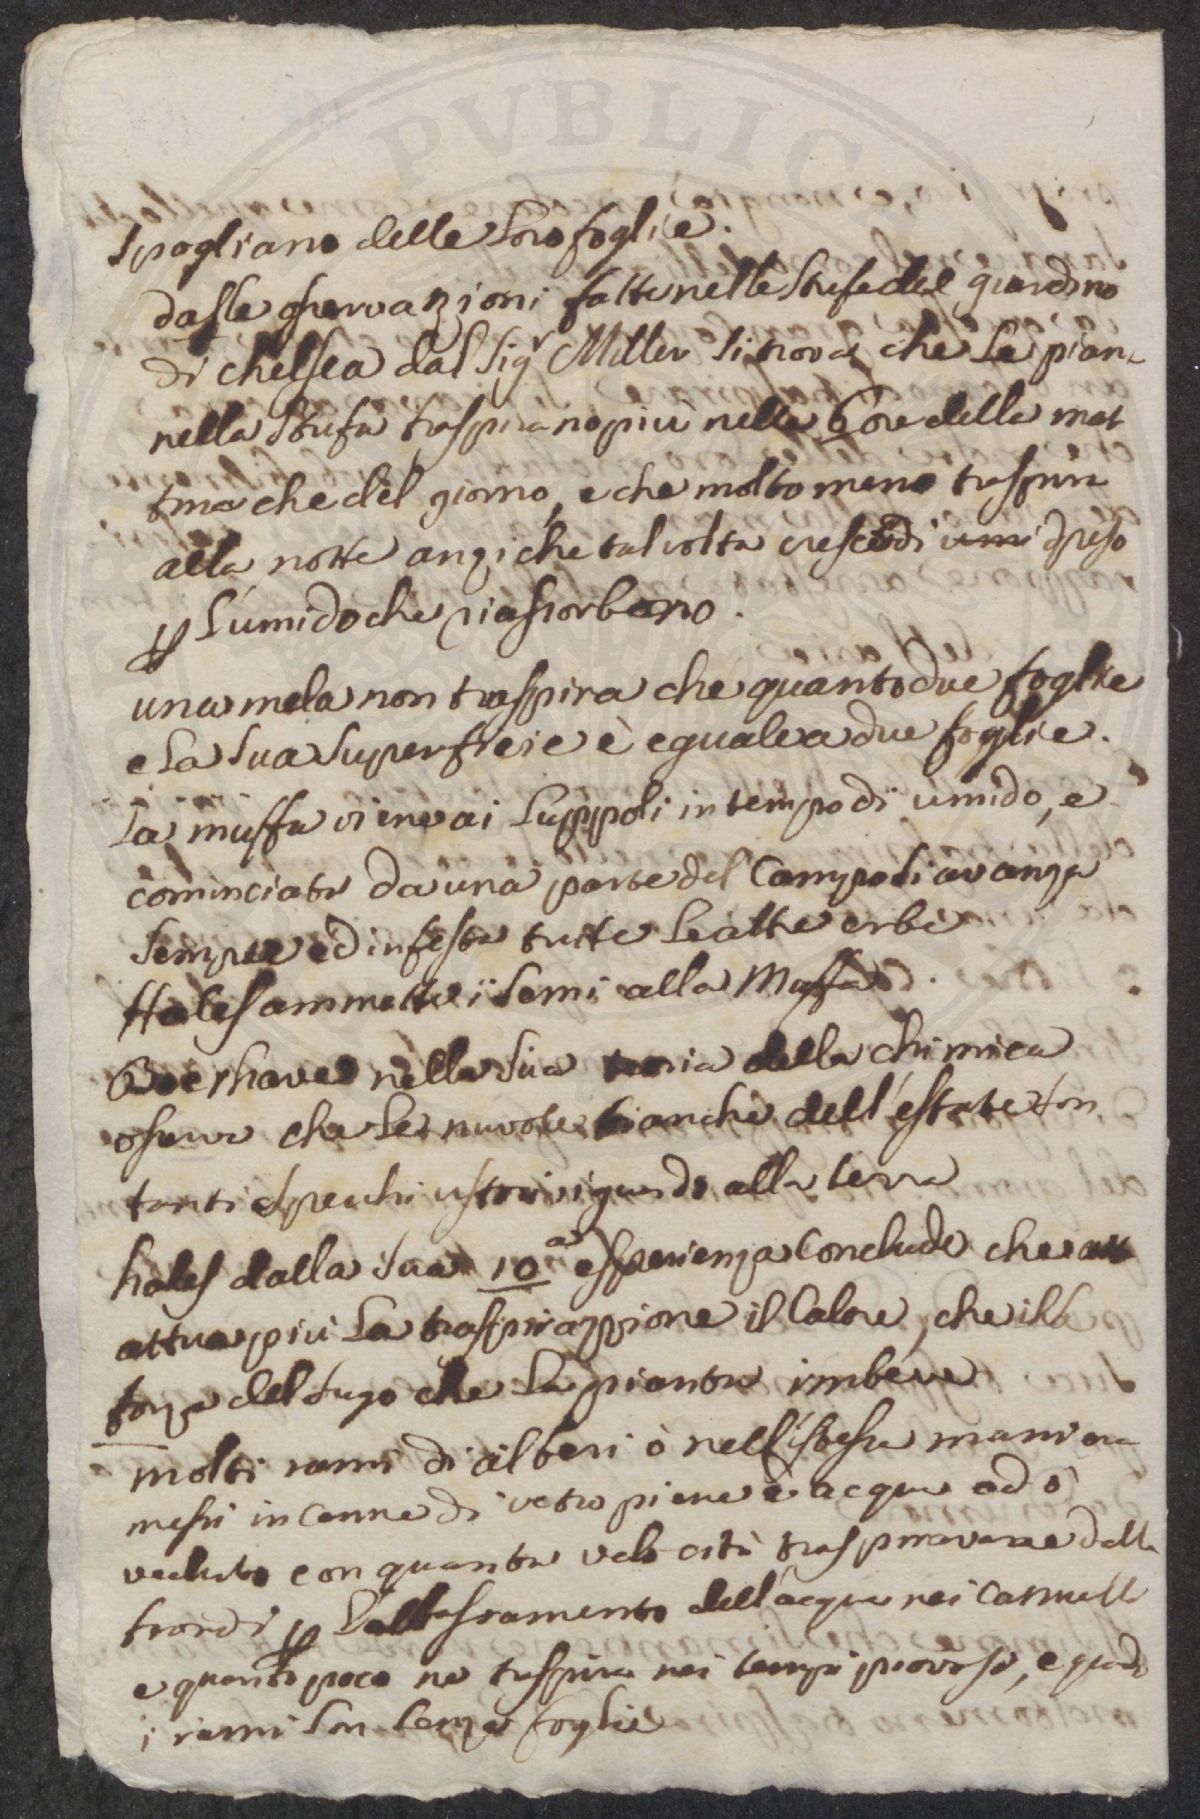 spogliano delle loro foglie.
dasle osservazioni fatte nelle stufe del giardino
di Chelsea dal Sigr Miller si trova che le pian-
nella stufa traspirano più nelle 6 ore della mat
tina che del giorno, e che molto meno traspira
alla notte anzi che talvolta cresce di peso
p l'umido che riassorbano.
una mela non traspira che quanto due foglie
e la sua superficie è eguale a due foglie.
la muffa viene ai luppoli in tempo di umido, e
cominciata da una parte del campo si avanza
sempre ed infesta tutte le altre erbe
Hales ammette i semi alla Muffa.
Boerhave nella sua teoria della chimica
osserva che le nuvole bianche dell'estate son
tanti specchi ustori riguardo alla terra
hales dalla sua 10a esperienza conclude che
attua più la traspirazzione il calore, che illa
forza del sugo che la pianta imbeve
molti rami di alberi ò nell'istessa maniera
messi in canne di vetro piene d'acqua ad ò
veduto con quanta velocità traspiravane dalle
frondi p l'abbassamento dell'acqua nei cannelli
e quanto poco ne traspira nei tempi piovosi, e quado
i rami son senza foglie